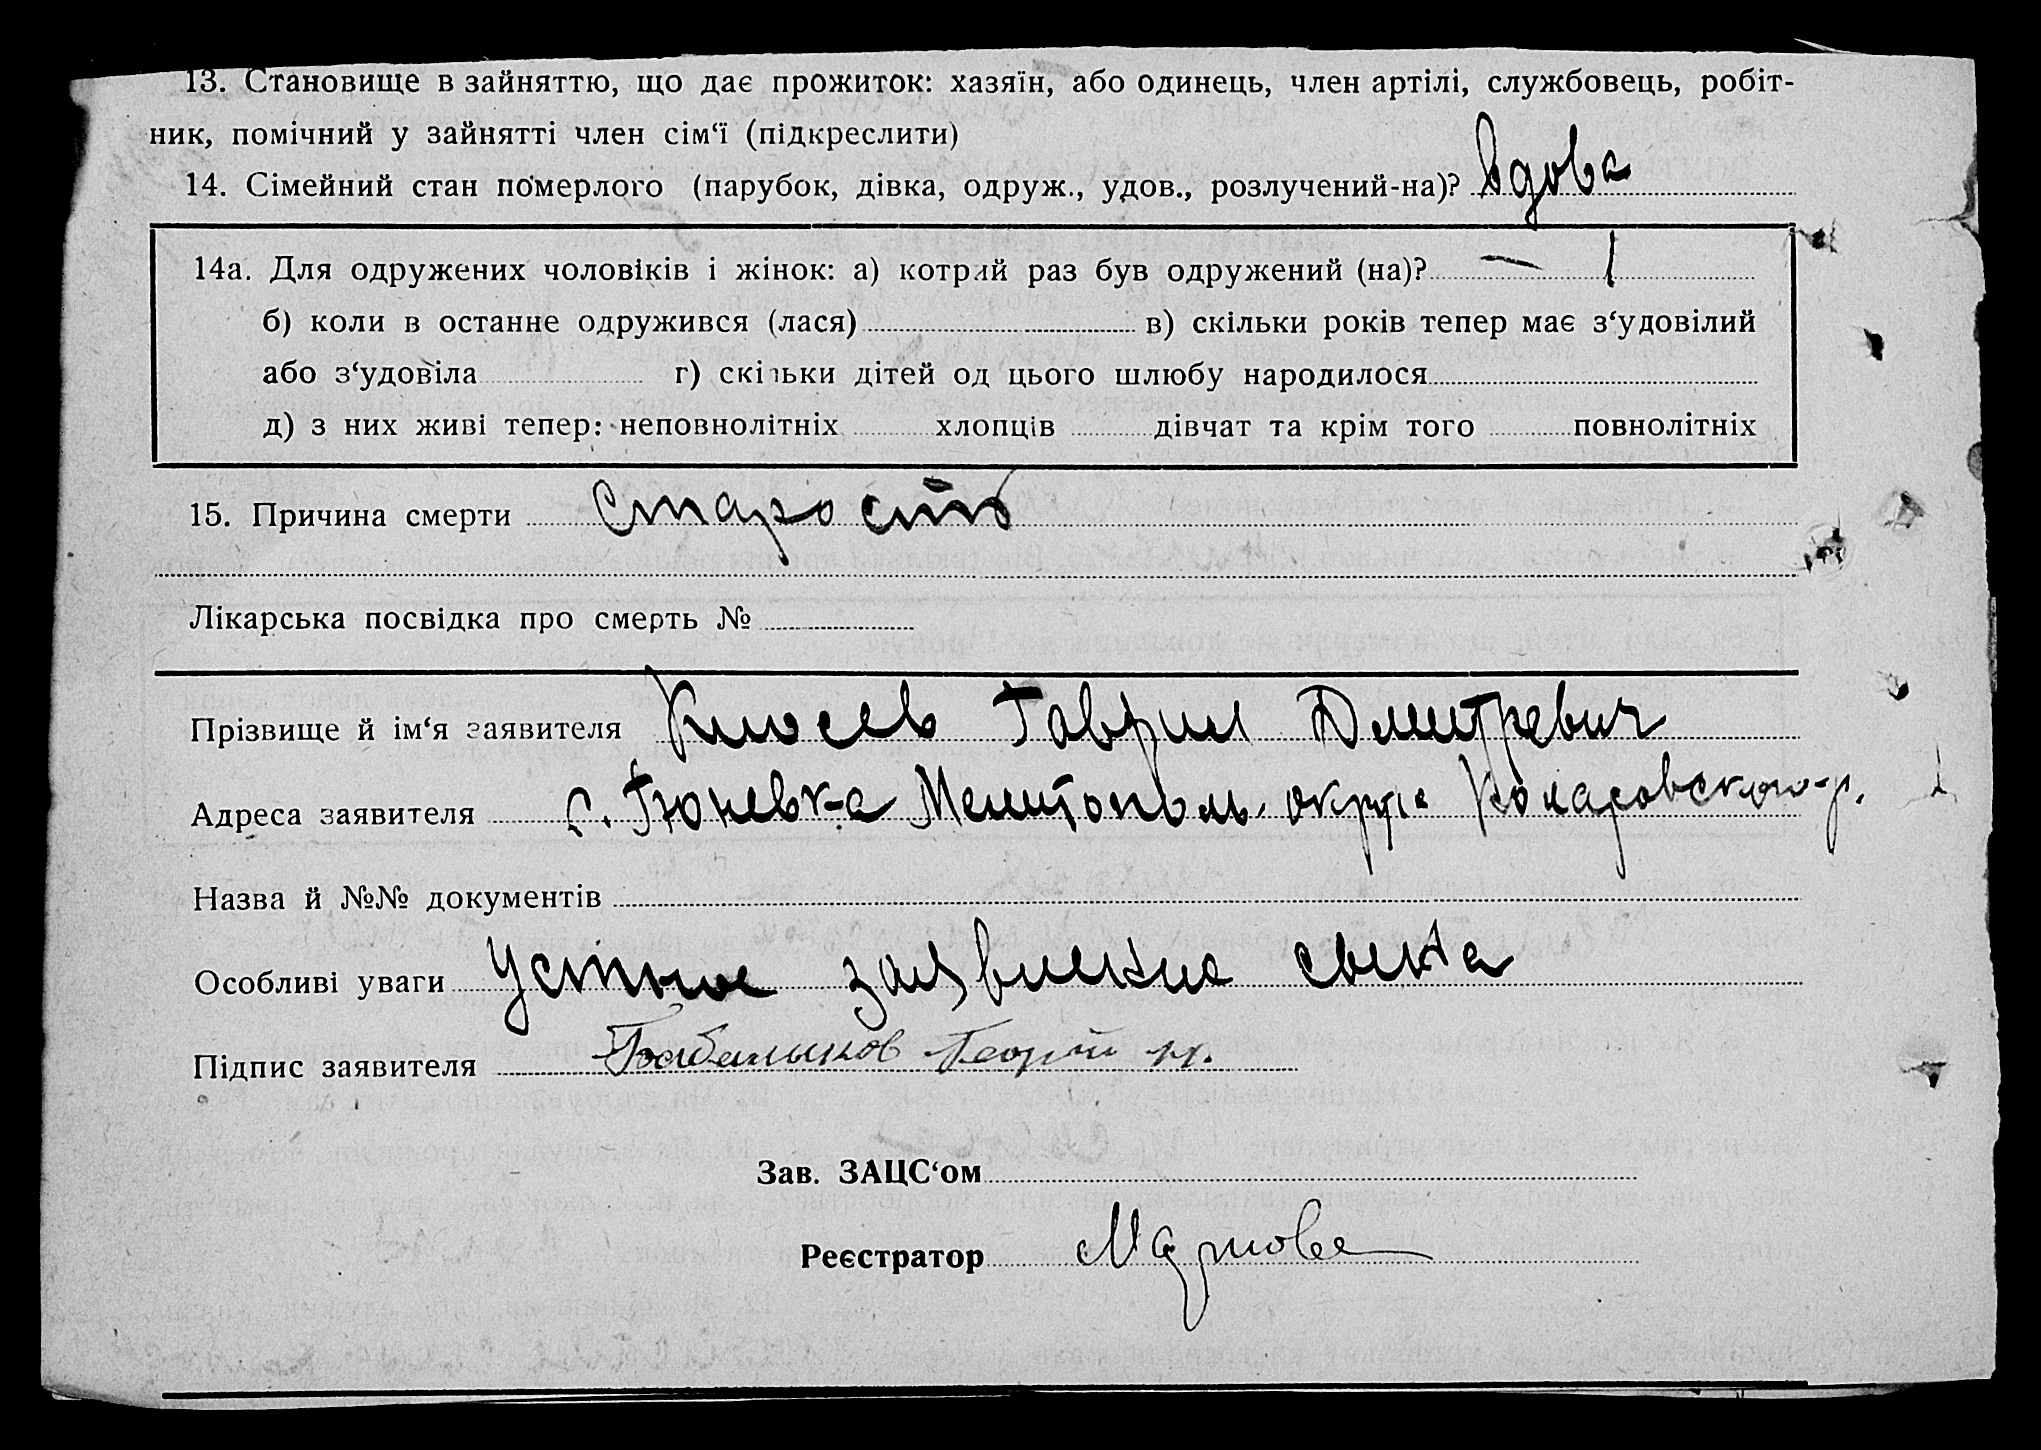 13. Становище в зайняттю, що дає прожиток: хазяїн, або одинець, член артілі, службовець, робіт-
ник, помічний у зайнятті член сім‘ї (підкреслити)
14. Сімейний стан померлого (парубок, дівка, одруж., удов., розлучений-на)? Вдова
14а. Для одружених чоловіків і жінок: а) котрий раз був одружений (на)? — 1
б) коли в останне одружився (лася) в) скільки років тепер має з‘удовілий
або з‘удовіла г) скільки дітей од цього шлюбу народилося
д) з них живі тепер: неповнолітніх хлопців дівчат та крім того повнолітніх
15. Причина смерти старость
Лікарська посвідка про смерть №
Прізвище й ім‘я заявителя Киосев Гаврил Дмитревич
Адреса заявителя с. Гюневка Мелитополь. округа Коларовского-р.
Назва й №№ документів
Особливі уваги Устное заявление сына
Підпис заявителя Георгій
Зав. ЗАЦС‘ом
Реєстратор